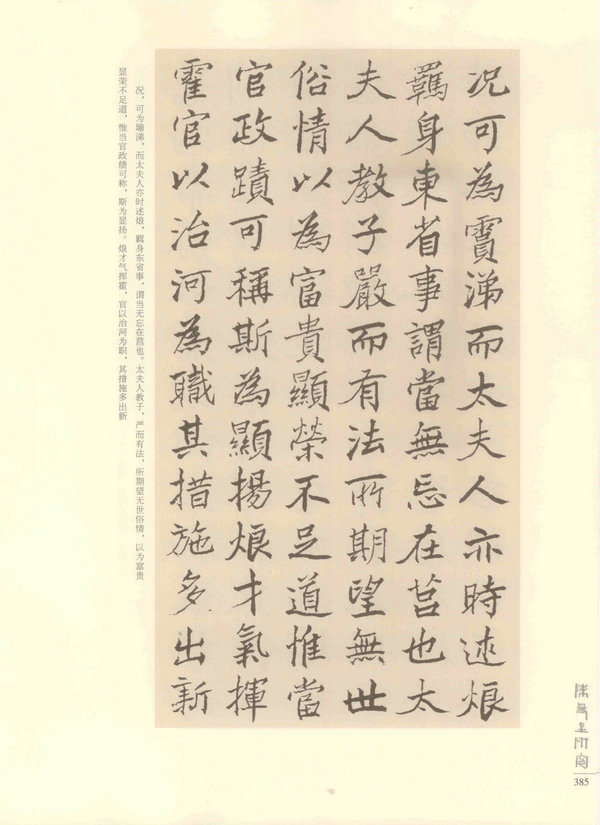 况可為實涕而太夫人亦時述烺
羈身東省事謂當無忘在莒也太
夫人教子嚴而有法所期望無世
俗情以為富貴顯榮不足道惟當
官政蹟可稱斯為顯揚烺才氣揮
霍官以治河為職其措施多出新
况，可为 涕，而太夫人亦时述烺，羁身东省事，谓当无忘在莒也。太夫人教子，严而有法，所期望无世俗情，以为富贵
显荣不足道，惟当官政绩可称，斯为显扬。烺才气挥霍，官以治河为职，其措施多出新
385